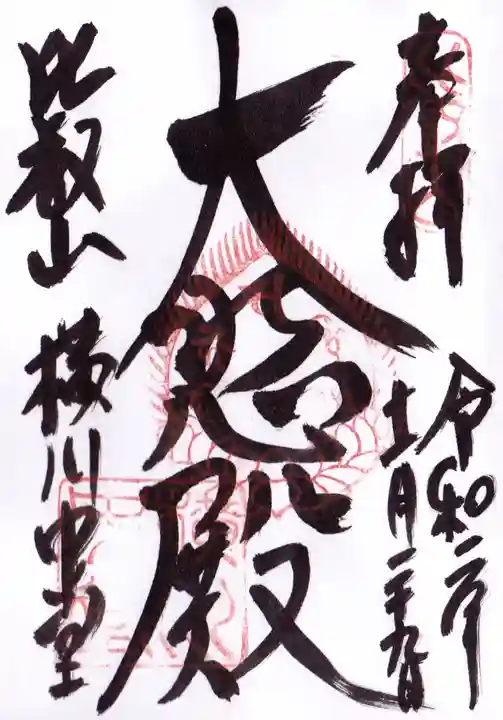 奉拝
令和二年
十一月二十九日
大殿
比叡山
横川中堂